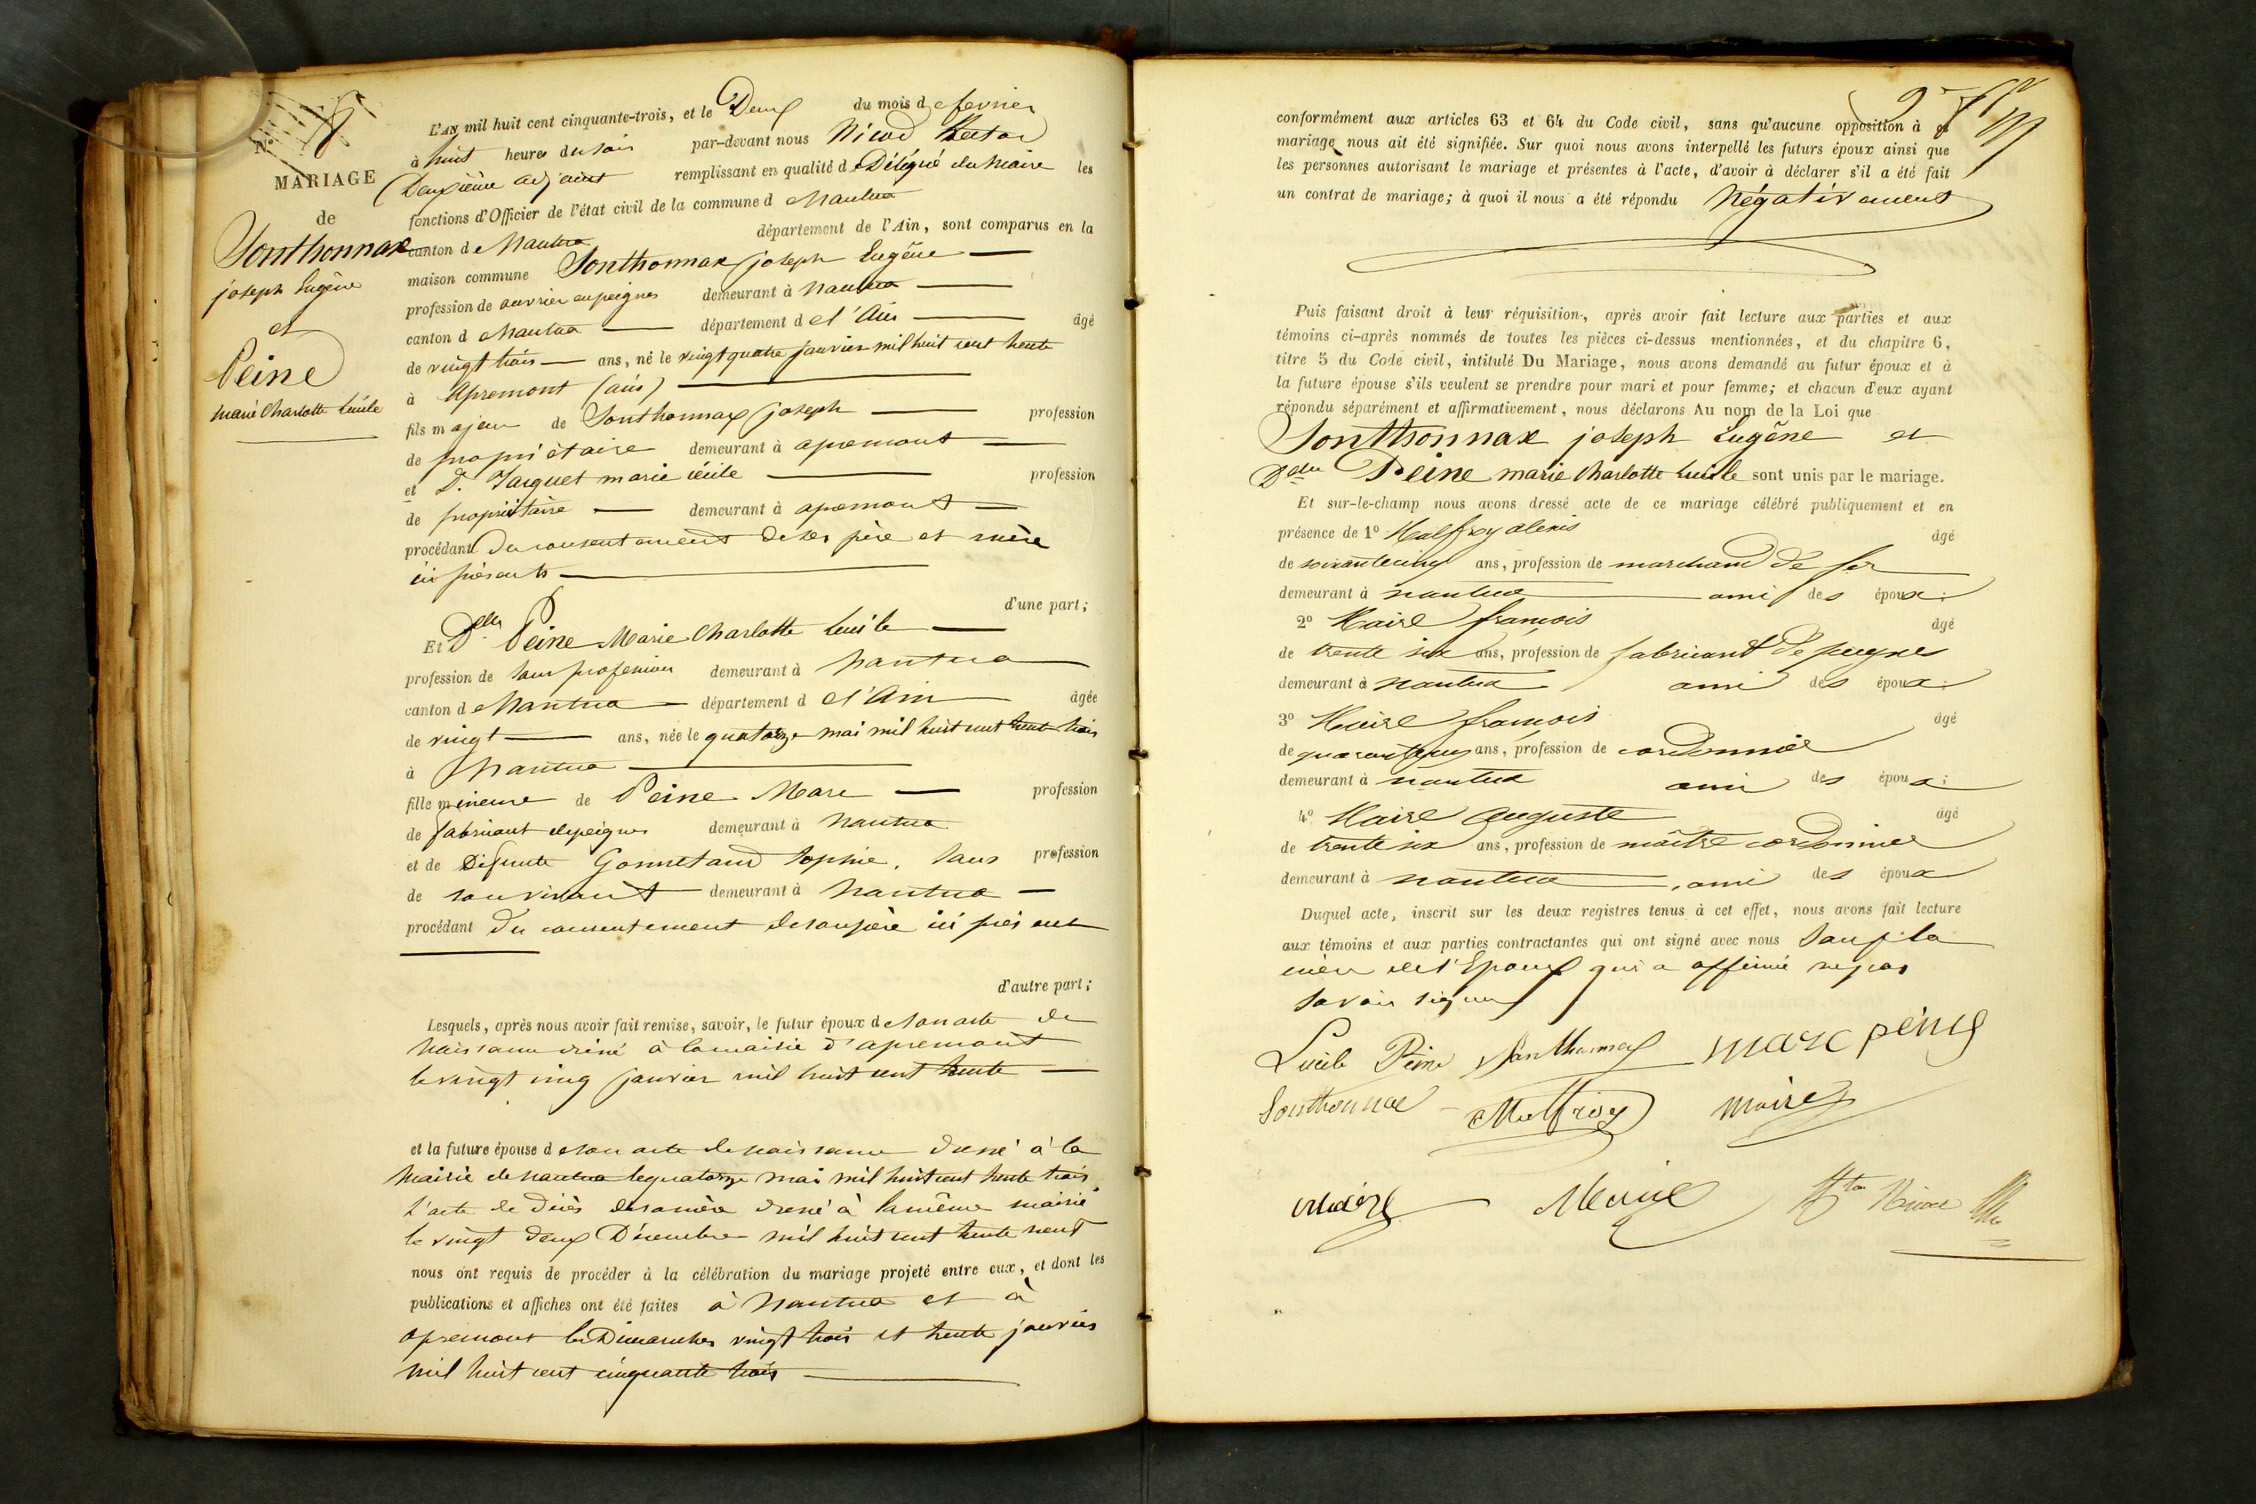 N° 8
MARIAGE
de
Sonthonnax
joseph Eugène
et
Peine
marie Charlotte Lucile
L'AN mil huit cent cinquante-trois, et le Deux du mois de fevrier
à huit heures du soir par-devant nous Nicod
Deuxième adjoint remplissant en qualité de Délégué du Maire les
fonctions d'Officier de l'état civil de la commune de Nantua
canton de Nantua département de l'Ain, sont comparus en la
maison commune Sonthonnax joseph Eugène
profession de ouvrier en peignes demeurant à Nantua
canton de Nantua département de l'Ain âgé
de vingt trois ans, né le vingt quatre janvier mil huit cent trente
à Apremont (ain)
fils majeur de Sonthonnax joseph profession
de propriétaire demeurant à apremont
et De Jacquet marie cécile profession
de propriétaire demeurant à apremont
procédant du consentement de ses père et mère
ici présents
d'une part;
Et Delle Peine Marie Charlotte Lucile
profession de sans profession demeurant à Nantua
canton de Nantua département de l'Ain âgée
de vingt ans, née le quatorze mai mil huit cent trente trois
à Nantua
fille mineure de Peine Marc profession
de fabricant de peignes demeurant à Nantua
et de Défunte Gonnetand Sophie, sans profession
de son vivant demeurant à Nantua
procédant du consentement de son père ici présent
d'autre part;
Lesquels, après nous avoir fait remise, savoir, le futur époux de son acte de
naissance dressé à la mairie d'apremont
le vingt cinq janvier mil huit cent trente
et la future épouse de son acte de naissance dressé à la
Mairie de nantua le quatorze mai mil huit cent trente trois
l'acte de décès de sa mère dressé à la même mairie
le vingt deux Décembre mil huit cent trente neuf
nous ont requis de procéder à la célébration du mariage projeté entre eux, et dont les
publications et affiches ont été faites à Nantua et à
apremont les Dimanches vingt trois et trente janvier
mil huit cent cinquante trois
conformément aux articles 63 et 64 du Code civil, sans qu'aucune opposition à ce
mariage nous ait été signifiée. Sur quoi nous avons interpellé les futurs époux ainsi que
les personnes autorisant le mariage et présentes à l'acte, d'avoir à déclarer s'il a été fait
un contrat de mariage; à quoi il nous a été répondu Négativement
Puis faisant droit à leur réquisition, après avoir fait lecture aux parties et aux
témoins ci-après nommés de toutes les pièces ci-dessus mentionnées, et du chapitre 6,
titre 5 du Code civil, intitulé Du Mariage, nous avons demandé au futur époux et à
la future épouse s'ils veulent se prendre pour mari et pour femme; et chacun d'eux ayant
répondu séparément et affirmativement, nous déclarons Au nom de la Loi que
Sonthonnax joseph Eugène et
Delle Peine marie Charlotte Lucile sont unis par le mariage.
Et sur-le-champ nous avons dressé acte de ce mariage célébré publiquement et en
présence de 1° Malfroy alexis âgé
de soixante cinq ans, profession de marchand de fer
demeurant à nantua ami des époux;
2° Maire françois âgé
de trente six ans, profession de fabricant de peignes
demeurant à nantua ami des époux;
3° Maire françois âgé
de ans, profession de cordonnier
demeurant à nantua ami des époux;
4° Maire Auguste âgé
de trente six ans, profession de maître cordonnier
demeurant à nantua, ami des époux
Duquel acte, inscrit sur les deux registres tenus à cet effet, nous avons fait lecture
aux témoins et aux parties contractantes qui ont signé avec nous sauf la
mère de l'Epoux qui a affirmé ne pas
savoir signer
Lucile Peine Sonthonnax marc peine
Sonthonnax Malfroy maire
maire Maire Nicod